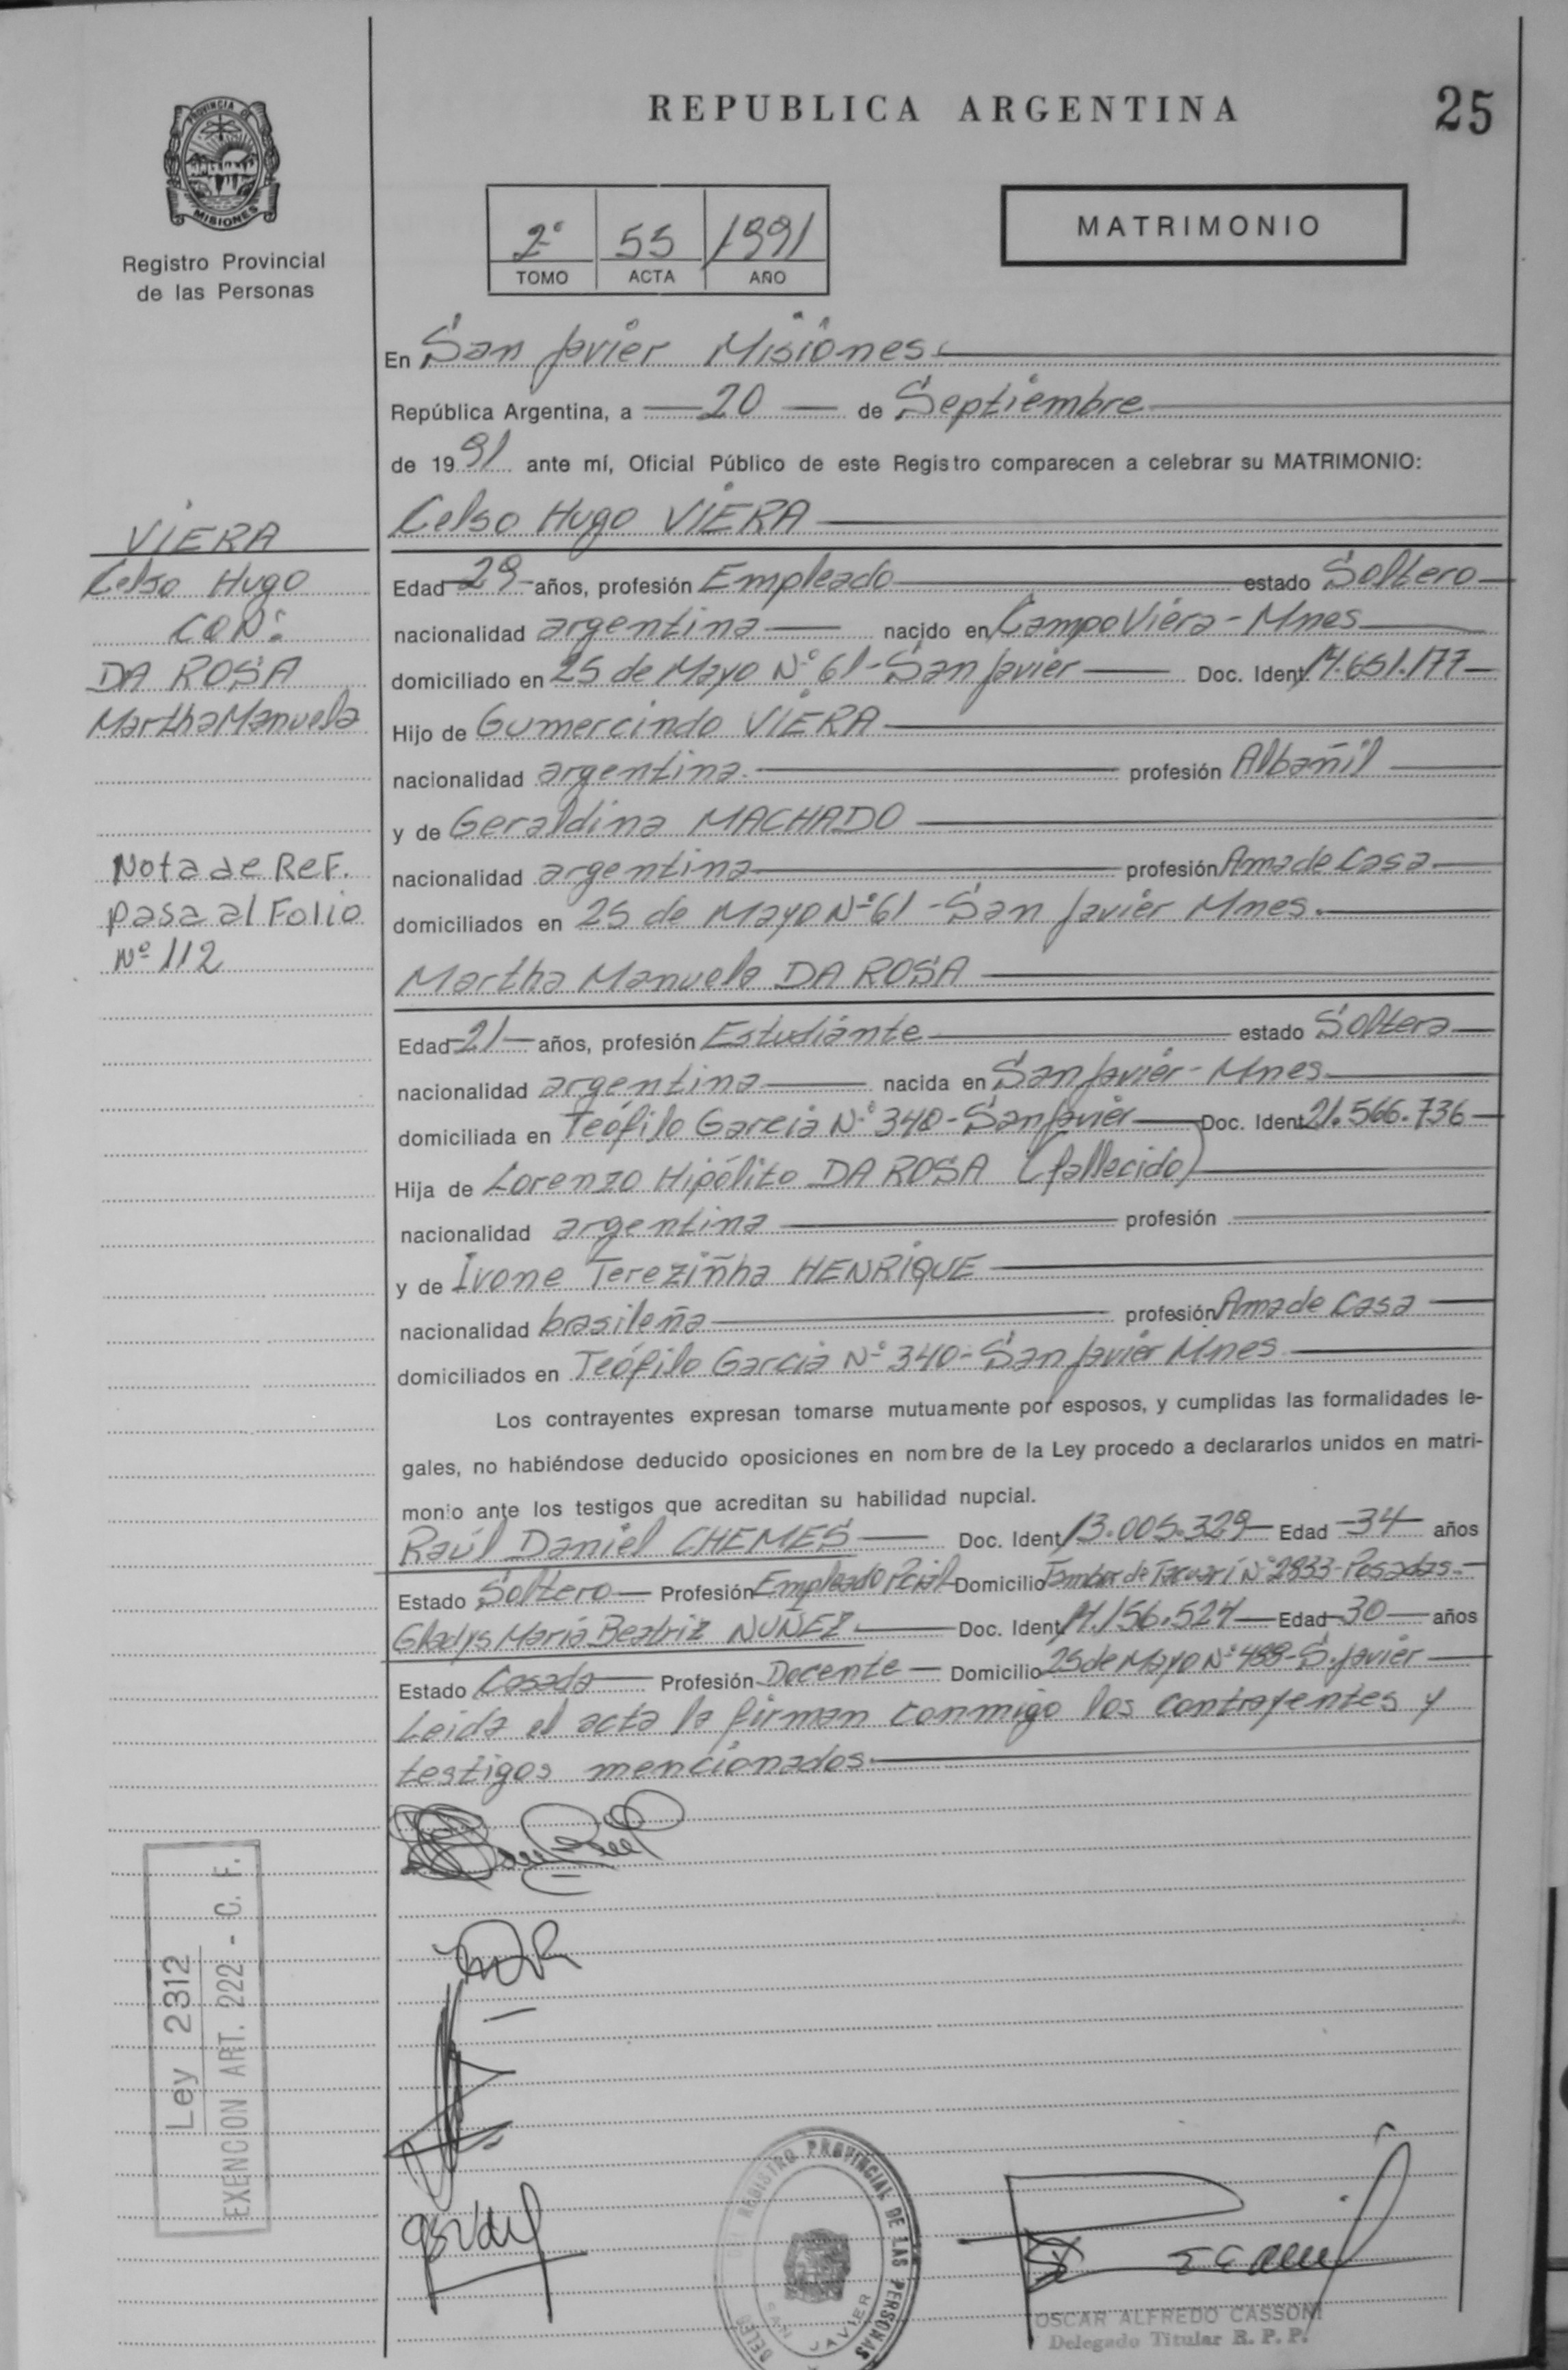 REPUBLICA ARGENTINA
25
PROVINCIA DE
MISIONES
Registro Provincial
de las Personas
2º 55 1991
TOMO ACTA AÑO
MATRIMONIO
En San Javier Misiones
República Argentina, a 20 de Septiembre
de 1991 ante mí, Oficial Público de este Registro comparecen a celebrar su MATRIMONIO:
Celso Hugo VIERA
VIERA
Celso Hugo
CON:
DA ROSA
Martha Manuela
Nota de Ref.
pasa al Folio
Nº 112
Edad 29 años, profesión Empleado estado Soltero
nacionalidad argentina nacido en Campo Viera - Mnes
domiciliado en 25 de Mayo Nº 61 - San Javier Doc. Ident. 14.651.177
Hijo de Gumercindo VIERA
nacionalidad argentina. profesión Albañil
y de Geraldina MACHADO
nacionalidad argentina profesión Ama de Casa
domiciliados en 25 de Mayo Nº 61 - San Javier Mnes.
Martha Manuela DA ROSA
Edad 21 años, profesión Estudiante estado Soltera
nacionalidad argentina nacida en San Javier - Mnes
domiciliada en Teófilo Garcia Nº 340 - San Javier Doc. Ident. 21.566.736
Hija de Lorenzo Hipólito DA ROSA (fallecido)
nacionalidad argentina profesión
y de Ivone Tereziñha HENRIQUE
nacionalidad brasileña profesión Ama de Casa
domiciliados en Teófilo Garcia Nº 340 - San Javier Mnes
Los contrayentes expresan tomarse mutuamente por esposos, y cumplidas las formalidades le-
gales, no habiéndose deducido oposiciones en nombre de la Ley procedo a declararlos unidos en matri-
monio ante los testigos que acreditan su habilidad nupcial.
Raúl Daniel CHEMES Doc. Ident. 13.005.329 Edad 34 años
Estado Soltero Profesión Empleado Pcial Domicilio Tambor de Tacuarí Nº 2833 - Posadas.
Gladys María Beatriz NUÑEZ Doc. Ident. 14.156.524 Edad 30 años
Estado Casada Profesión Docente Domicilio 25 de Mayo Nº 488 - S. Javier
Leida el acta la firman conmigo los contrayentes y
testigos mencionados
Ley 2312
EXENCION ART. 222 - C. F.
REGISTRO PROVINCIAL DE LAS PERSONAS
SAN JAVIER
OSCAR ALFREDO CASSONI
Delegado Titular R. P. P.